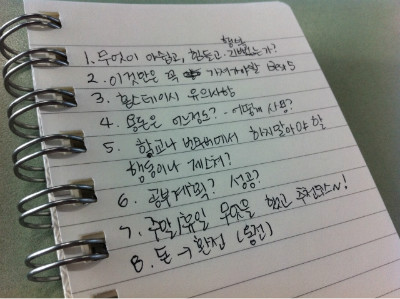 1. 무엇이 아쉽고, 힘들고, 행복 기뻤는가?
2. 이것만은 꼭 가져가야할 Best 5
3. 홈스테이시 유의사항
4. 용돈은 어느정도? - 어떻게 사용?
5. 학교나 번화가에서 하지말아야 할
행동이나 제스처?
6. 공부계획? 성공?
7. 주말/휴일 무엇을 했고 추천코스~!
8. 돈 → 환전 (동전)